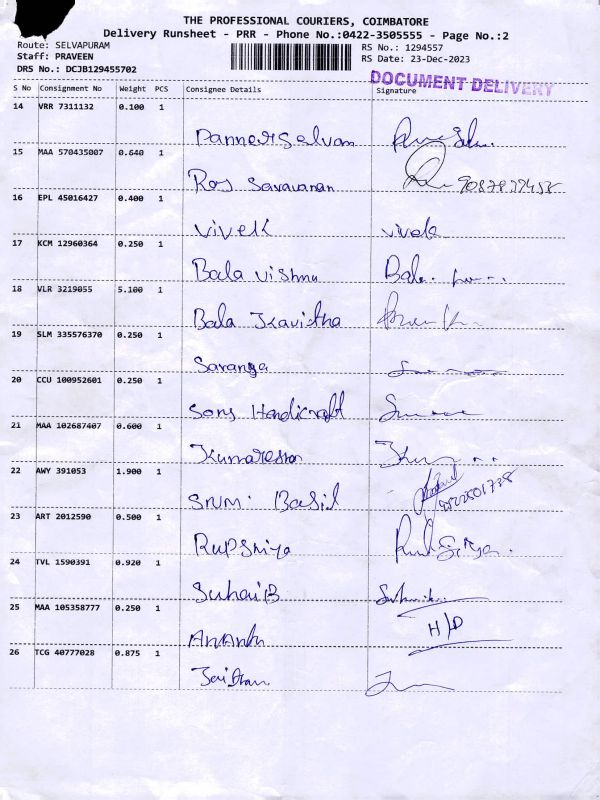 THE PROFESSIONAL COURIERS, COIMBATORE
Delivery Runsheet - PRR - Phone No.:0422-3505555 - Page No.:2
Route: SELVAPURAM
Staff: PRAVEEN
DRS No.: DCJB129455702
RS No.: 1294557
RS Date: 23-Dec-2023
DOCUMENT DELIVERY
S No Consignment No Weight PCS Consignee Details Signature
14 VRR 7311132 0.100 1
Pannerselvam
15 MAA 570435007 0.640 1
Roy Saravanan
16 EPL 45016427 0.400 1
Vivek vivek
17 KCM 12960364 0.250 1
Bala Vishnu Bala
18 VLR 3219055 5.100 1
Bala Kavitha
19 SLM 335576370 0.250 1
Saranya
20 CCU 100952601 0.250 1
Sony Handicraft
21 MAA 102687407 0.600 1
Kumaresan
22 AWY 391053 1.900 1
SNM. Basil
23 ART 2012590 0.500 1
Rupshiya
24 TVL 1590391 0.920 1
SuhaiB
25 MAA 105358777 0.250 1
Ananth H/D
26 TCG 40777028 0.875 1